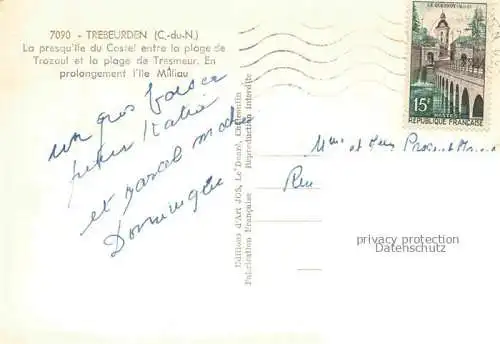 7090 - TREBEURDEN (C.-du-N.)
La presqu'île du Castel entre la plage de
Trozoul et la plage de Tresmeur. En
prolongement l'île Milliau
un gros baiser
Italie
et Marcel
Dominique
Editions d'Art JOS, Le Doaré, Châteaulin
Fabrication Française Reproduction interdite
LE QUESNOY (NORD)
15F
POSTES
REPUBLIQUE FRANÇAISE
Mme et
Rue
privacy protection
www.ansichtskartenversand.com